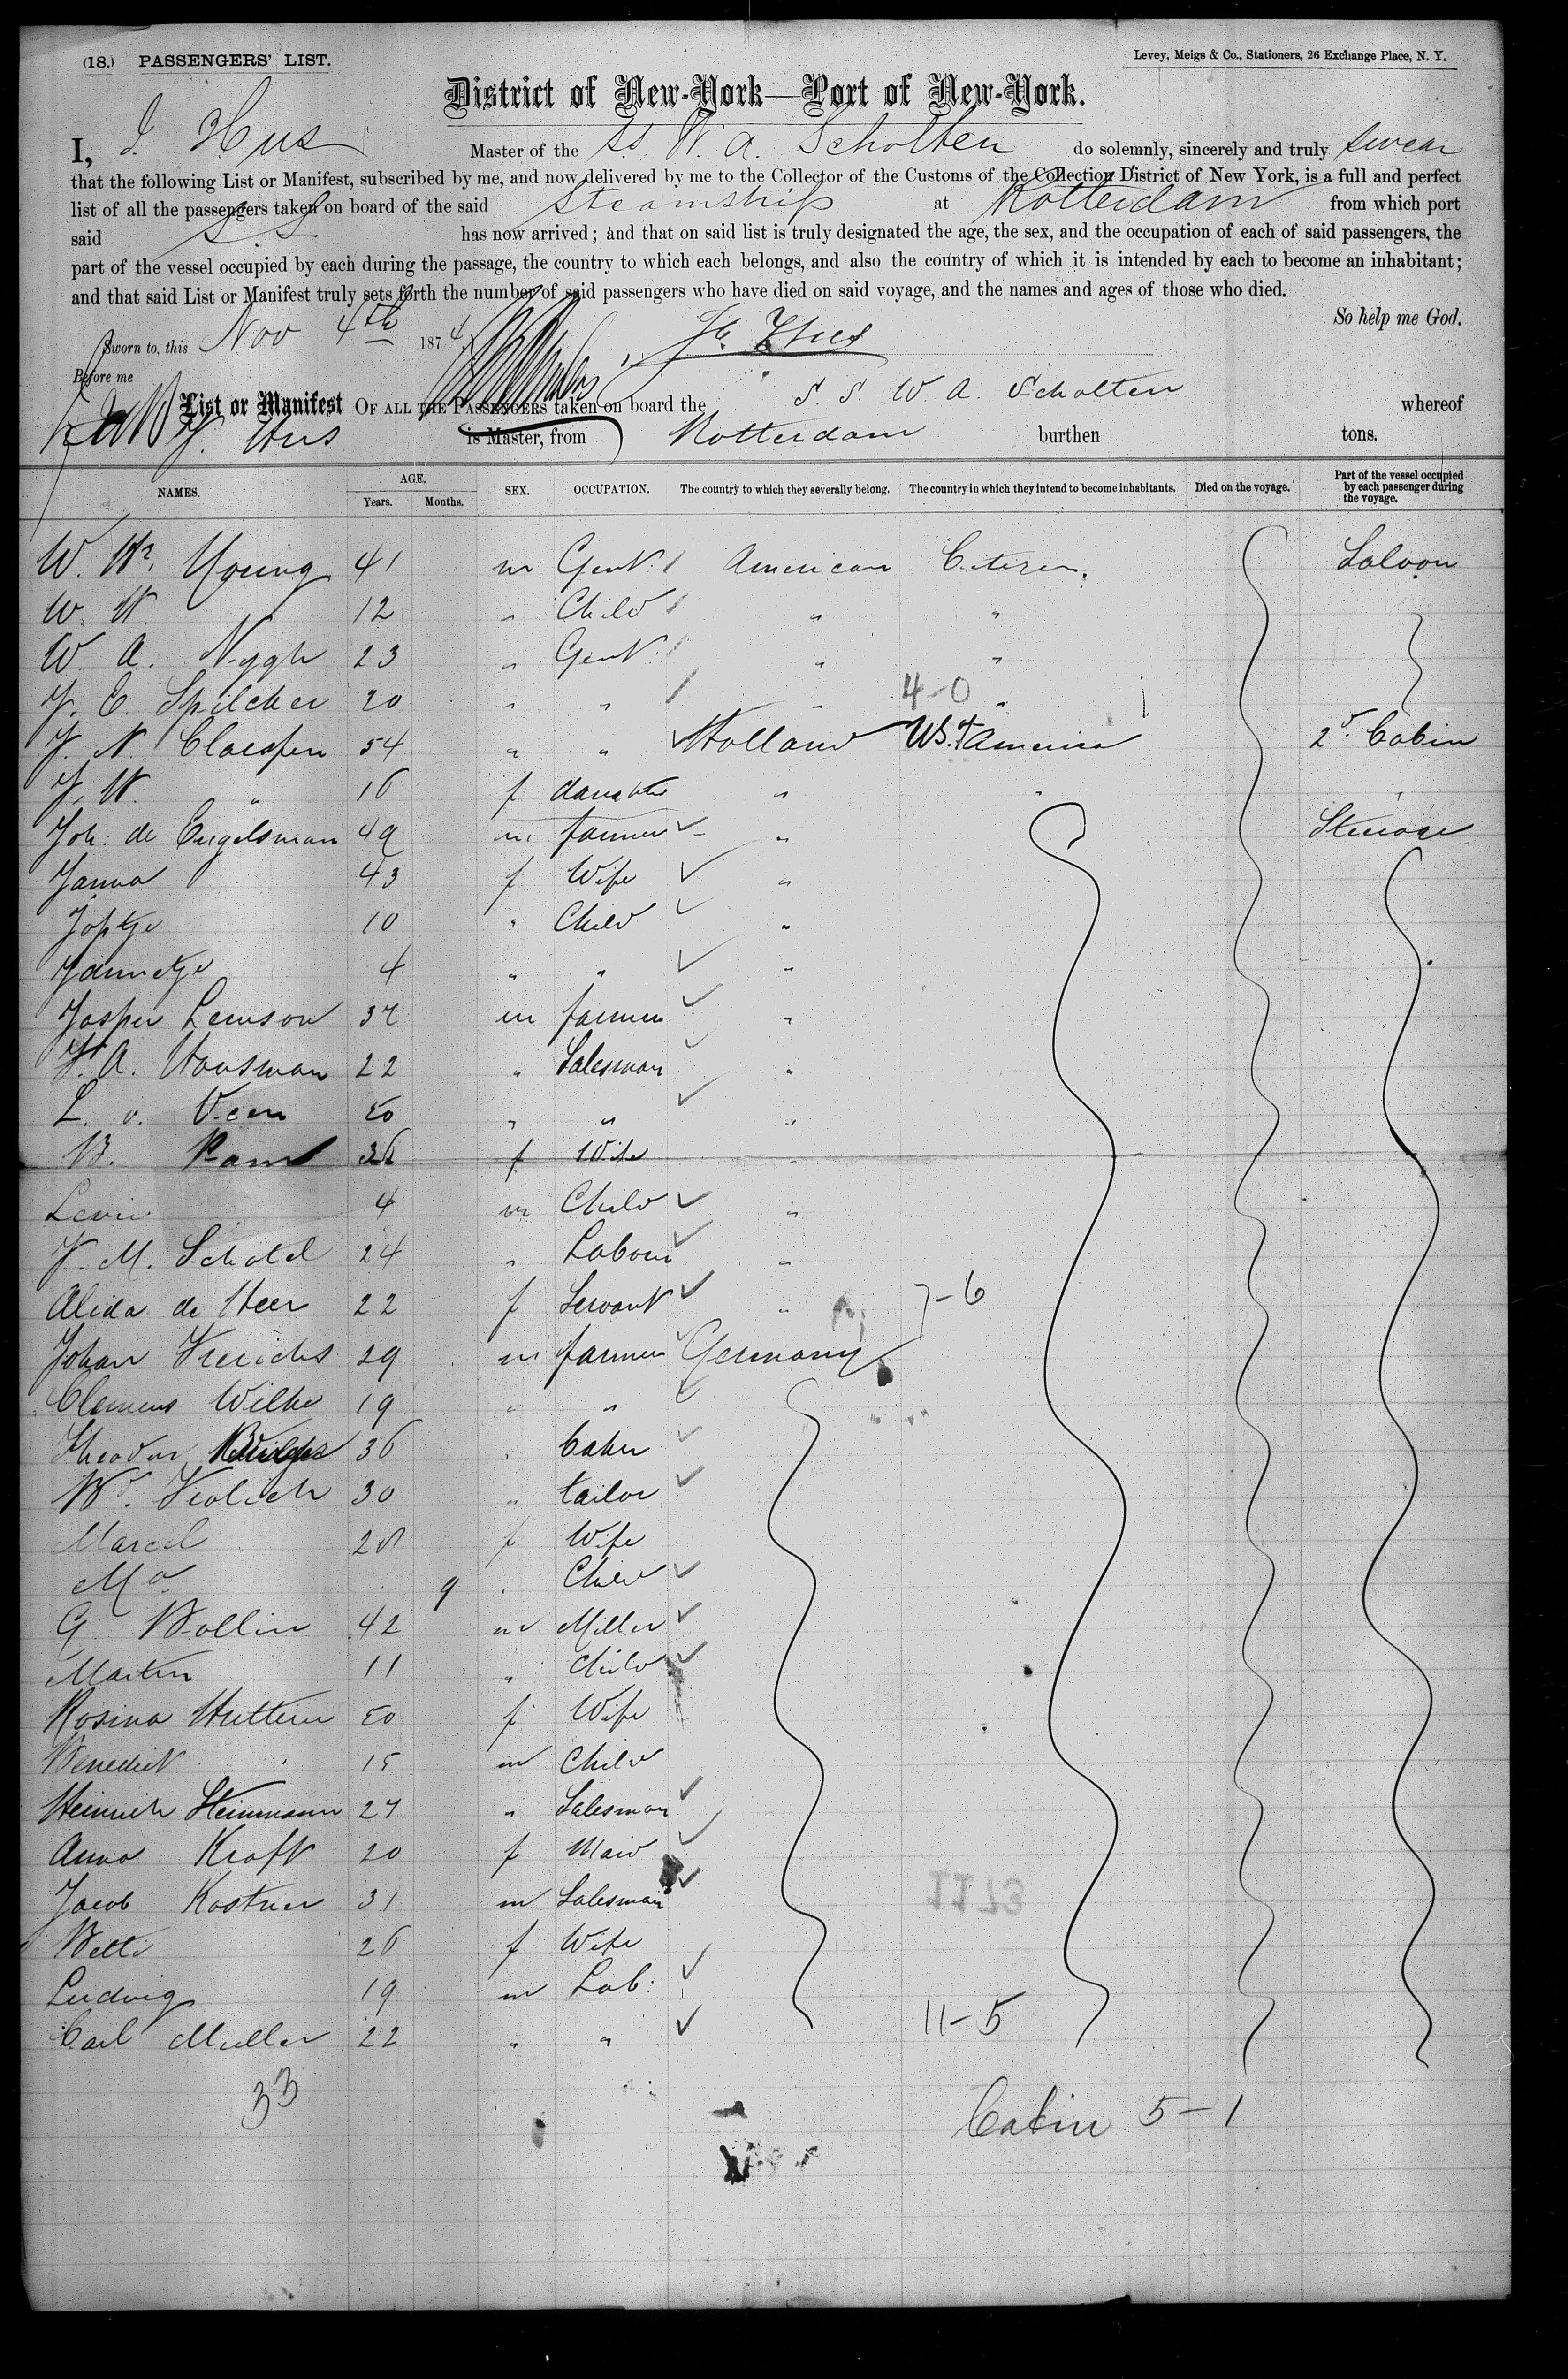 (18.) PASSENGERS' LIST.
Levey, Meigs & Co., Stationers, 26 Exchange Place, N. Y.
District of New-York—Port of New-York.
I, J. Hus Master of the S.S. W. A. Scholten do solemnly, sincerely and truly swear
that the following List or Manifest, subscribed by me, and now delivered by me to the Collector of the Customs of the Collection District of New York, is a full and perfect
list of all the passengers taken on board of the said Steamship at Rotterdam from which port
said S. S. has now arrived; and that on said list is truly designated the age, the sex, and the occupation of each of said passengers, the
part of the vessel occupied by each during the passage, the country to which each belongs, and also the country of which it is intended by each to become an inhabitant;
and that said List or Manifest truly sets forth the number of said passengers who have died on said voyage, and the names and ages of those who died.
So help me God.
Sworn to, this Nov 4th 1874 J. Hus
Before me
List or Manifest OF ALL THE PASSENGERS taken on board the S. S. W. A. Scholten whereof
J. Hus is Master, from Rotterdam burthen tons.
NAMES. AGE. Years. Months. SEX. OCCUPATION. The country to which they severally belong. The country in which they intend to become inhabitants. Died on the voyage. Part of the vessel occupied by each passenger during the voyage.
W. Wm. Young 41 m Gent. American Citizen. Saloon
W. W. 12 " Child " "
W. A. Nygh 23 " Gent. " "
J. E. Spilcker 20 " " " "
4-0
J. N. Claessen 54 " " Holland US. of America 2d. Cabin
J. W. " 16 f daughter " "
Joh. de Engelsman 49 m farmer " Steerage
Janna 43 f Wife "
Joptje 10 " Child "
Jannetje 4 " " "
Jasper Lemson 37 m farmer "
A. Housman 22 " Salesman "
L. v. Veen 50 " " "
B. Ram 36 f Wife "
Levie 4 m Child "
J. M. Schotel 24 " Labour "
Alida de Heer 22 f Servant " 7-6
Johan Frerichs 29 m farmer Germany
Clemens Wilke 19 " "
Theodor 36 " baker
Wd. Frolich 30 " tailor
Marcel 28 f Wife
Ma. 9 " Child
G. Bollin 42 m Miller
Martin 11 " Child
Rosina Huttern 50 f Wife
Benedict 15 m Child
Heinrich Steinmann 27 " Salesman
Anna Kraft 20 f Maid
Jacob Kostner 31 m Salesman
1173
Betti 26 f Wife
Ludwig 19 m Lab:
Carl Muller 22 " " 11-5
33
Cabin 5-1